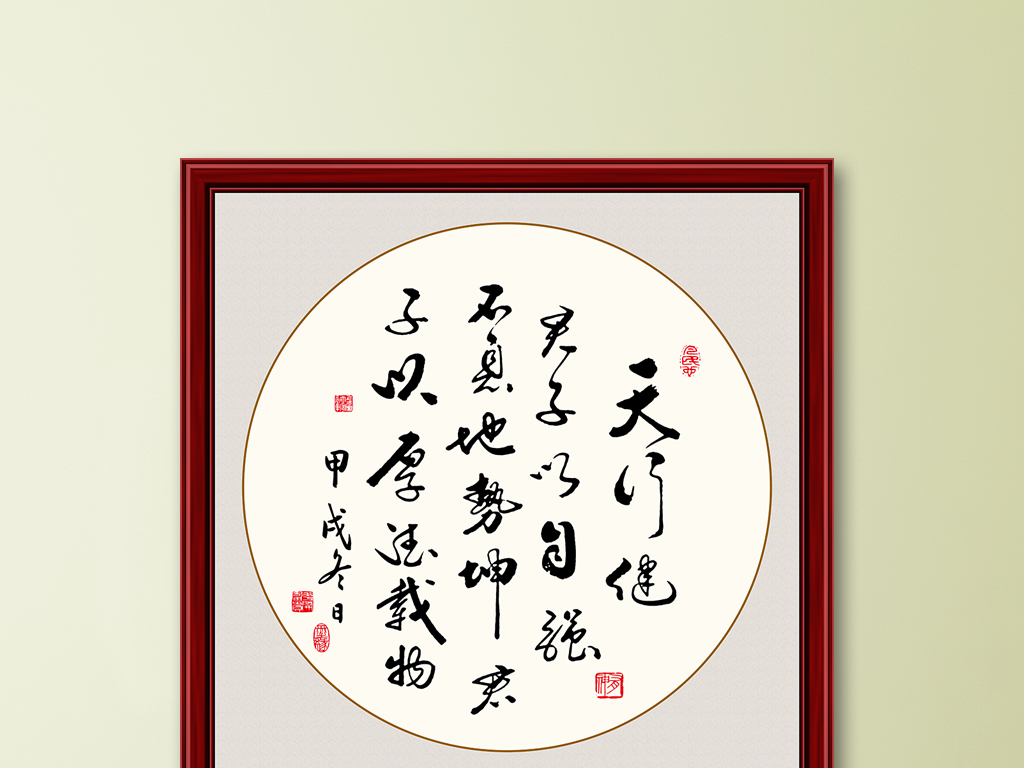 天行健
君子以自强
不息地势坤君
子以厚德载物
甲戌冬日